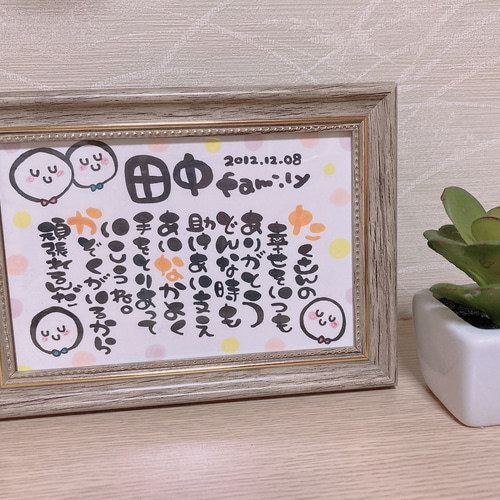 田中 family
2012.12.08
たくさんの
幸せをいつも
ありがとう
どんな時も
助けあい支え
あい なかよく
手をとりあって
いこうね。
かぞくがいるから
頑張れるんだ